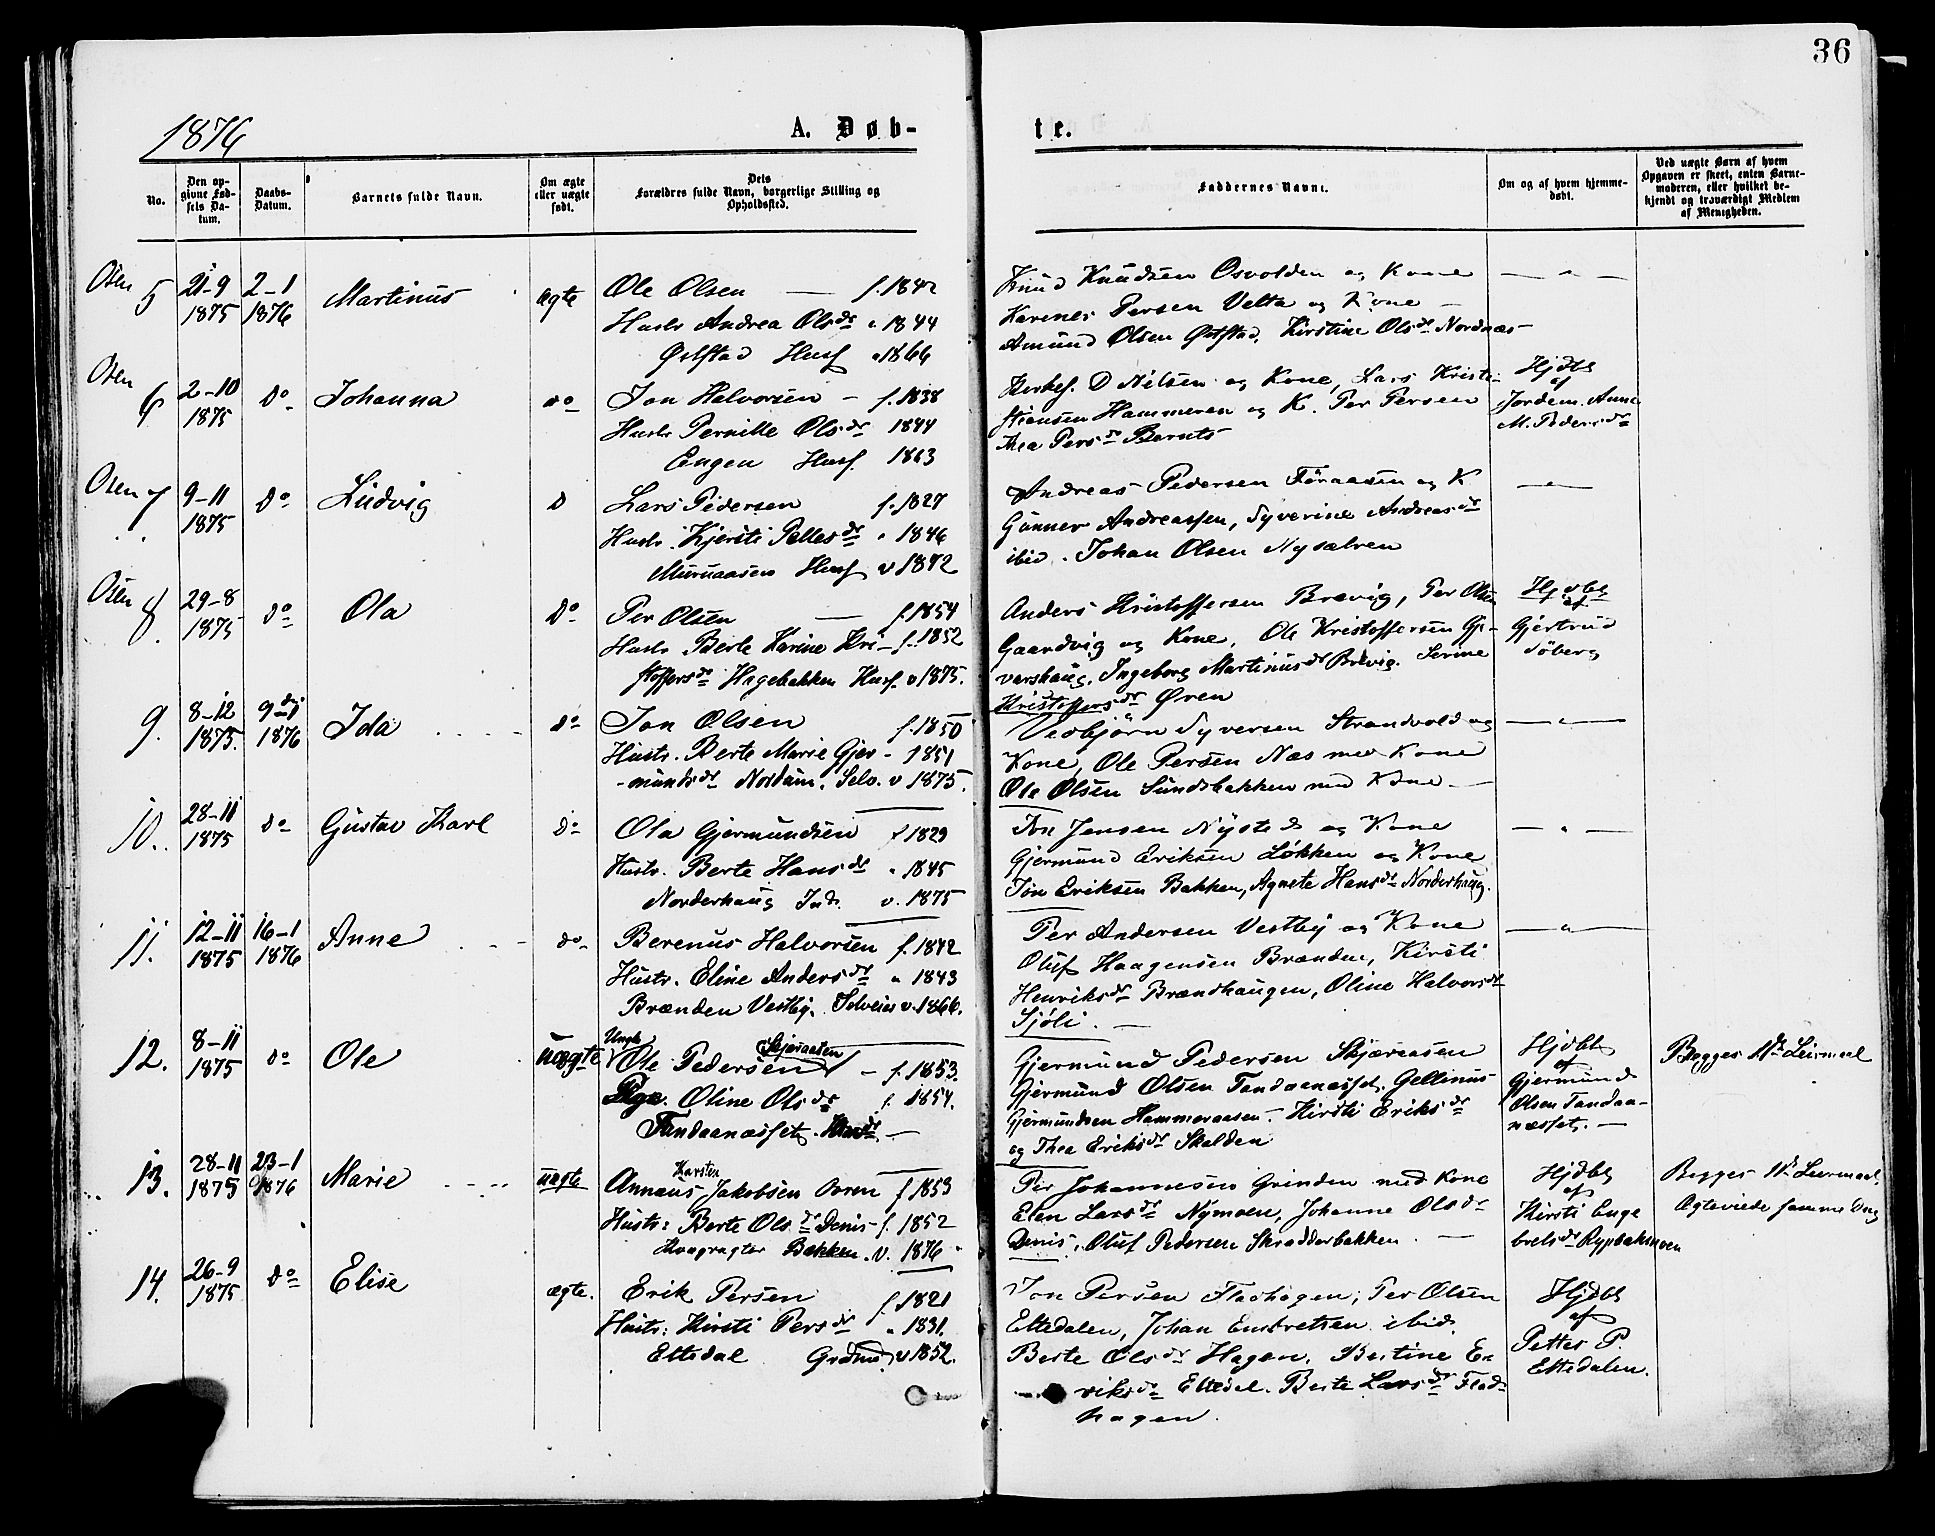 36
1876
A. Døb-
te.
No.
Den op-
givne Fød-
sels Da-
tum.
Daabs-
Datum.
Barnets fulde Navn.
Om ægte
eller uægte
født.
Dets
Forældres fulde Navn, borgerlige Stilling og
Opholdssted.
Faddernes Navne.
Om og af hvem hjemme-
døbt.
Ved uægte Børn af hvem
Opgaven er skeet, enten Barne-
moderen, eller hvilket be-
kjendt og troværdigt Medlem
af Menigheden.
Osen 5 21-9 1875 2-1 1876 Martinus ægte
Ole Olsen — f. 1842
Hustr Andrea Olsdr " 1844
Øststad Husf " 1866
Knud Knudsen Osvolden og Kone
Karenes Persen Velta og Kone —
Amund Olsen Øststad, Kirstine Olsdr Nordnæs —
— " —
Osen 6 2-10 1875 do Johanna do
Jon Halvorsen — f. 1838
Hustr Pernille Olsdr 1844
Engen Husf. 1863
Kirkes. D Nilsen og Kone, Lars Kristi-
stiansen Hammeren og K. Per Persen
Thea Persdr Bernts
Hjdbt
af
Jordem. Anne
M. Pedersdr
Osen 7 9-11 1875 do Ludvig D
Lars Pedersen f. 1827
Hustr. Kjersti Pellesdr " 1846
Muruaasen Husf v 1872
Andreas Pedersen Føraasen og K
Gunner Andreassen, Syverine Andreasdr
ibid. Johan Olsen Nysætren
— " —
Osen 8. 29-8 1875 do Ola Do
Per Olsen — f. 1854
Hustr Berte Karine Kri- f. 1852
stoffersdr Hagebakken Husf. v 1875.
Anders Kristoffersen Brævig, Per Olsen
Gaardvig og Kone, Ole Kristoffersen Gje-
varshaug, Ingeborg Martinusdr Brævig. Serine
Kristoffersdr Øren
Hjdbt
af
Gjertrud
Søberg
9. 8-12 1875. 9-1 1876 Ida do
Jon Olsen f. 1850
Hustr. Berte Marie Gjer- 1851
-mundsdr Nordum. Selv. v 1875.
Vesbjørn Syversen Strandvold og
Kone, Ole Persen Næs med Kone
Ole Olsen Sundsbakken med Kone —
— " —
10. 28-11 1875 do Gustav Karl do
Ola Gjermundsen f 1829
Hustr. Berte Hansdr " 1845
Norderhaug Ind. v. 1875
Jon Jensen Nysted og Kone
Gjermund Eriksen Løkken og Kone
Jon Eriksen Bakken, Agnete Hansdr Norderhaug.
— " —
11. 12-11 1875 16-1 1876 Anne do
Berenus Halvorsen f. 1842
Hustr. Eline Andersdr " 1843
Brænden Vestby. Selveier v. 1866.
Per Andersen Vestby og Kone
Oluf Haagensen Brænden, Kirsti
Henriksdr Brændhaugen, Oline Halvorsdr
Sjøli. —
— " —
12. 8-11 1875 do Ole uægte
Ungk Ole Pedersen Skjæraasen — f. 1853.
Pige. Oline Olsdr f. 1854.
Tandaanæsset. —
Gjermund Pedersen Skjæraasen
Gjermund Olsen Tandaanæsset. Gellinus
Gjermundsen Hammeraasen. — Kirsti Eriksdr
og Thea Eriksdr Skalden
Hjdbt
af
Gjermund
Olsen Tandaa-
næsset. —
Begges 1ste Leiermaal
13. 28-11 1875 23-1 1876 Marie uægte
Karsten
Annæus Jakobsen Ooren f 1853
Hustr: Berte Olsdr Denis f. 1852
Bakken. v. 1876
Per Johannesen Grinden med Kone
Elen Larsdr Nymoen, Johanne Olsdr
Denis, Oluf Pedersen Skradderbakken. —
Hjdbt
af
Kirsti Enge
brelsdr Rypbakmoen
Begges 1ste Leiermaal,
Ægteviede samme Dag
14. 26-9 1875 do Elise ægte.
Erik Persen f. 1821
Hustr: Kirsti Persdr " 1831.
Ettedal Grdmd v 1852.
Jon Persen Fladhagen, Per Olsen
Ettedalen, Johan Embretsen ibid.
Berte Olsdr Hagen. Bertine E-
riksdr Ettedal. Berte Larsdr Flad-
hagen.
Hjdbt
af
Petter P.
Ettedalen.